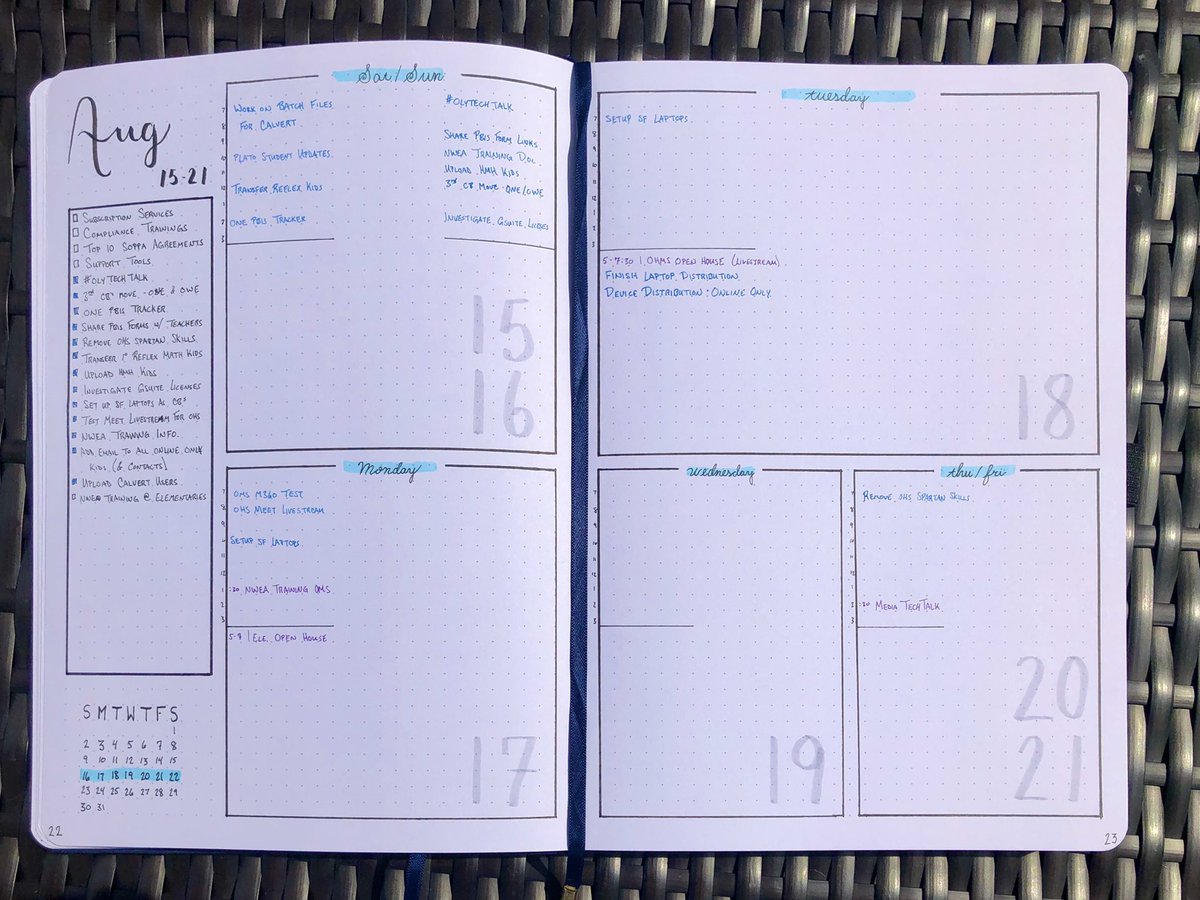 Aug
15-21
SUBSCRIPTION SERVICES
COMPLIANCE TRAININGS
TOP 10 SOPPA AGREEMENTS
SUPPORT TOOLS
#OLYTECHTALK
3rd CB MOVE - ONE & OWE
ONE PBIS TRACKER
SHARE PBIS FORMS W/ TEACHERS
REMOVE OHS SPARTAN SKILLS
TRANSFER REFLEX MATH KIDS
UPLOAD HMH KIDS
INVESTIGATE GSUITE LICENSES
SET UP SF LAPTOPS AS CB'S
TEST MEET LIVESTREAM FOR OHS
NWEA TRAINING INFO.
EMAIL TO ALL ONLINE ONLY
KIDS (& CONTACTS)
UPLOAD CALVERT USERS
NWEA TRAINING @ ELEMENTARIES
S M T W T F S
1
2 3 4 5 6 7 8
9 10 11 12 13 14 15
16 17 18 19 20 21 22
23 24 25 26 27 28 29
30 31
22
Sat/Sun
7 WORK ON BATCH FILES
8 FOR CALVERT
PLATO STUDENT UPDATES
TRANSFER REFLEX KIDS
ONE PBIS TRACKER
3
#OLYTECHTALK
SHARE PBIS FORM LINKS
NWEA TRAINING DOC
UPLOAD HMH KIDS
3rd CB MOVE - ONE/OWE
INVESTIGATE GSUITE LICENSES
15
16
Monday
7 OMS M360 TEST
8 OHS MEET LIVESTREAM
9
SETUP SF LAPTOPS
11
12
1 :30 NWEA TRAINING OMS
2
3
5-7 | ELE. OPEN HOUSE
17
tuesday
7 SETUP SF LAPTOPS
8
9
10
11
12
1
2
3
5-7:30 | OHMS OPEN HOUSE (LIVESTREAM)
FINISH LAPTOP DISTRIBUTION
DEVICE DISTRIBUTION: ONLINE ONLY
18
wednesday
7
8
9
10
11
12
1
2
3
19
thu/fri
7 REMOVE OHS SPARTAN SKILLS
8
9
10
11
12
1
2 :30 MEDIA TECHTALK
3
20
21
23